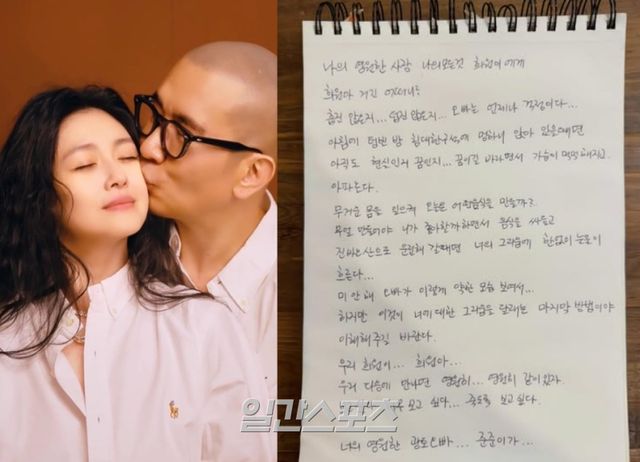 나의 영원한 사랑 나의모든것 희원이에게
희원아 거긴 어떠니?
춥진 않은지... 덥진 않은지... 오빠는 언제나 걱정이다...
아침에 텅빈 방 침대한구석에 멍하니 앉아 있을때면
아직도 현실인지 꿈인지... 꿈이길 바라면서 가슴이 먹먹해지고.
아파온다.
무거운 몸을 일으켜 오늘은 어떤음식을 만들까?.
무얼 만들어야 니가 좋아할까하면서 음식을 싸들고
진바오산으로 운전해 갈때면 너의 그리움에 한없이 눈물이
흐른다...
미안해 오빠가 이렇게 약한 모습 보여서...
하지만 이것이 너에대한 그리움을 달래는 마지막 방법이야
이해해주길 바란다.
우리 희원이... 희원아...
우리 다음에 만나면 영원히... 영원히 같이있자.
보고 싶다... 죽도록 보고싶다.
일간스포츠
너의 영원한 광토오빠... 준준이가...